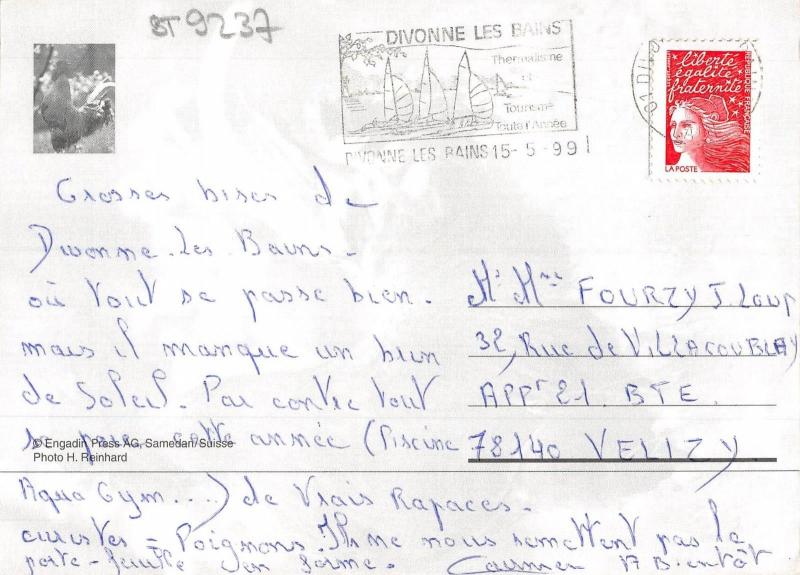 ST 9237
DIVONNE LES BAINS
Thermalisme
et
Tourisme
Toute l'Année
DIVONNE LES BAINS 15-5-99
liberté
égalité
fraternité
RÉPUBLIQUE FRANÇAISE
LA POSTE
Grosses bises de
Divonne-Les Bains-
où tout se passe bien.
mais il manque un brin
de Soleil. Par contre tout
se paie cette année (Piscine
Aqua Gym....) de Vrais Rapaces.
curistes = Poignons! Ils ne nous remettent pas le
porte-feuille en forme. Carmen A Bientôt
Mr Mme FOURZY J. Loup
32, Rue de VILLACOUBLAY
APPt 21. BTE.
78140 VELIZY.
© Engadin Press AG, Samedan/Suisse
Photo H. Reinhard